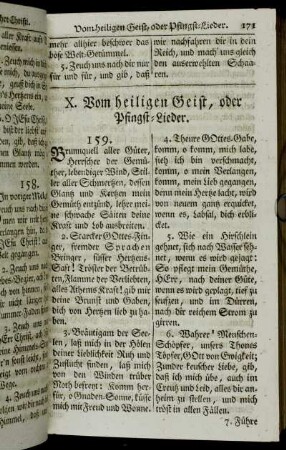 Vom heiligen Geist, oder Pfingst-Lieder. 171
mehr allhier beschwer das
böse Welt-Getümmel.
5. Zeuch uns nach dir nur
für und für, und gib, daß
wir nachfahren dir in dein
Reich, und mach uns gleich
den auserwehlten Schaa-
ren.
X. Vom heiligen Geist, oder
Pfingst-Lieder.
159.
Brunnquell aller Güter,
Herrscher der Gemü-
ther, lebendiger Wind, Stil-
ler aller Schmertzen, dessen
Glantz und Kertzen mein
Gemüth entzündt, lehre
meine schwache Säiten deine
Krafft und Lob ausbreiten.
2. Starcker GOttes-Fin-
ger, fremder Sprachen
Bringer, süsser Hertzens-
Safft! Tröster der Betrüb-
ten, Flamme der Verliebten,
alles Athems Krafft! gib mir
deine Brunst und Gaben,
dich von Hertzen lieb zu ha-
ben.
3. Bräutigam der See-
len, laß mich in der Hölen
deiner Lieblichkeit Ruh und
Zuflucht finden, laß mich
von den Winden trüber
Noth befreyt! Komm her-
für, o Gnaden-Sonne, küsse
mich mit Freud und Wonne.
4. Theure GOttes-Gabe,
komm, o komm, mich labe,
sieh ich bin verschmacht,
komm, o mein Verlangen,
komm, mein Lieb gegangen,
denn mein Hertze lacht, wird
von neuem gantz erquicket,
wenn es, Labsal, dich erbli-
cket.
5. Wie ein Hirschlein
gehnet, sich nach Wasser seh-
net, wenn es wird gejagt:
So pflegt mein Gemüthe,
HErr, nach deiner Güte,
wenn es wird geplagt, tief zu
seufzen, und im Dürren,
nach dir reichem Strom zu
girren.
6. Wahrer Menschen
Schöpfer, unsers Thones
Töpfer, GOtt von Ewigkeit;
Zunder keuscher Liebe, gib
daß ich mich übe, auch im
Creutz und Leid, alles dir an-
heim zu stellen, und mich
tröst in allen Fällen.
7. Führe
158.